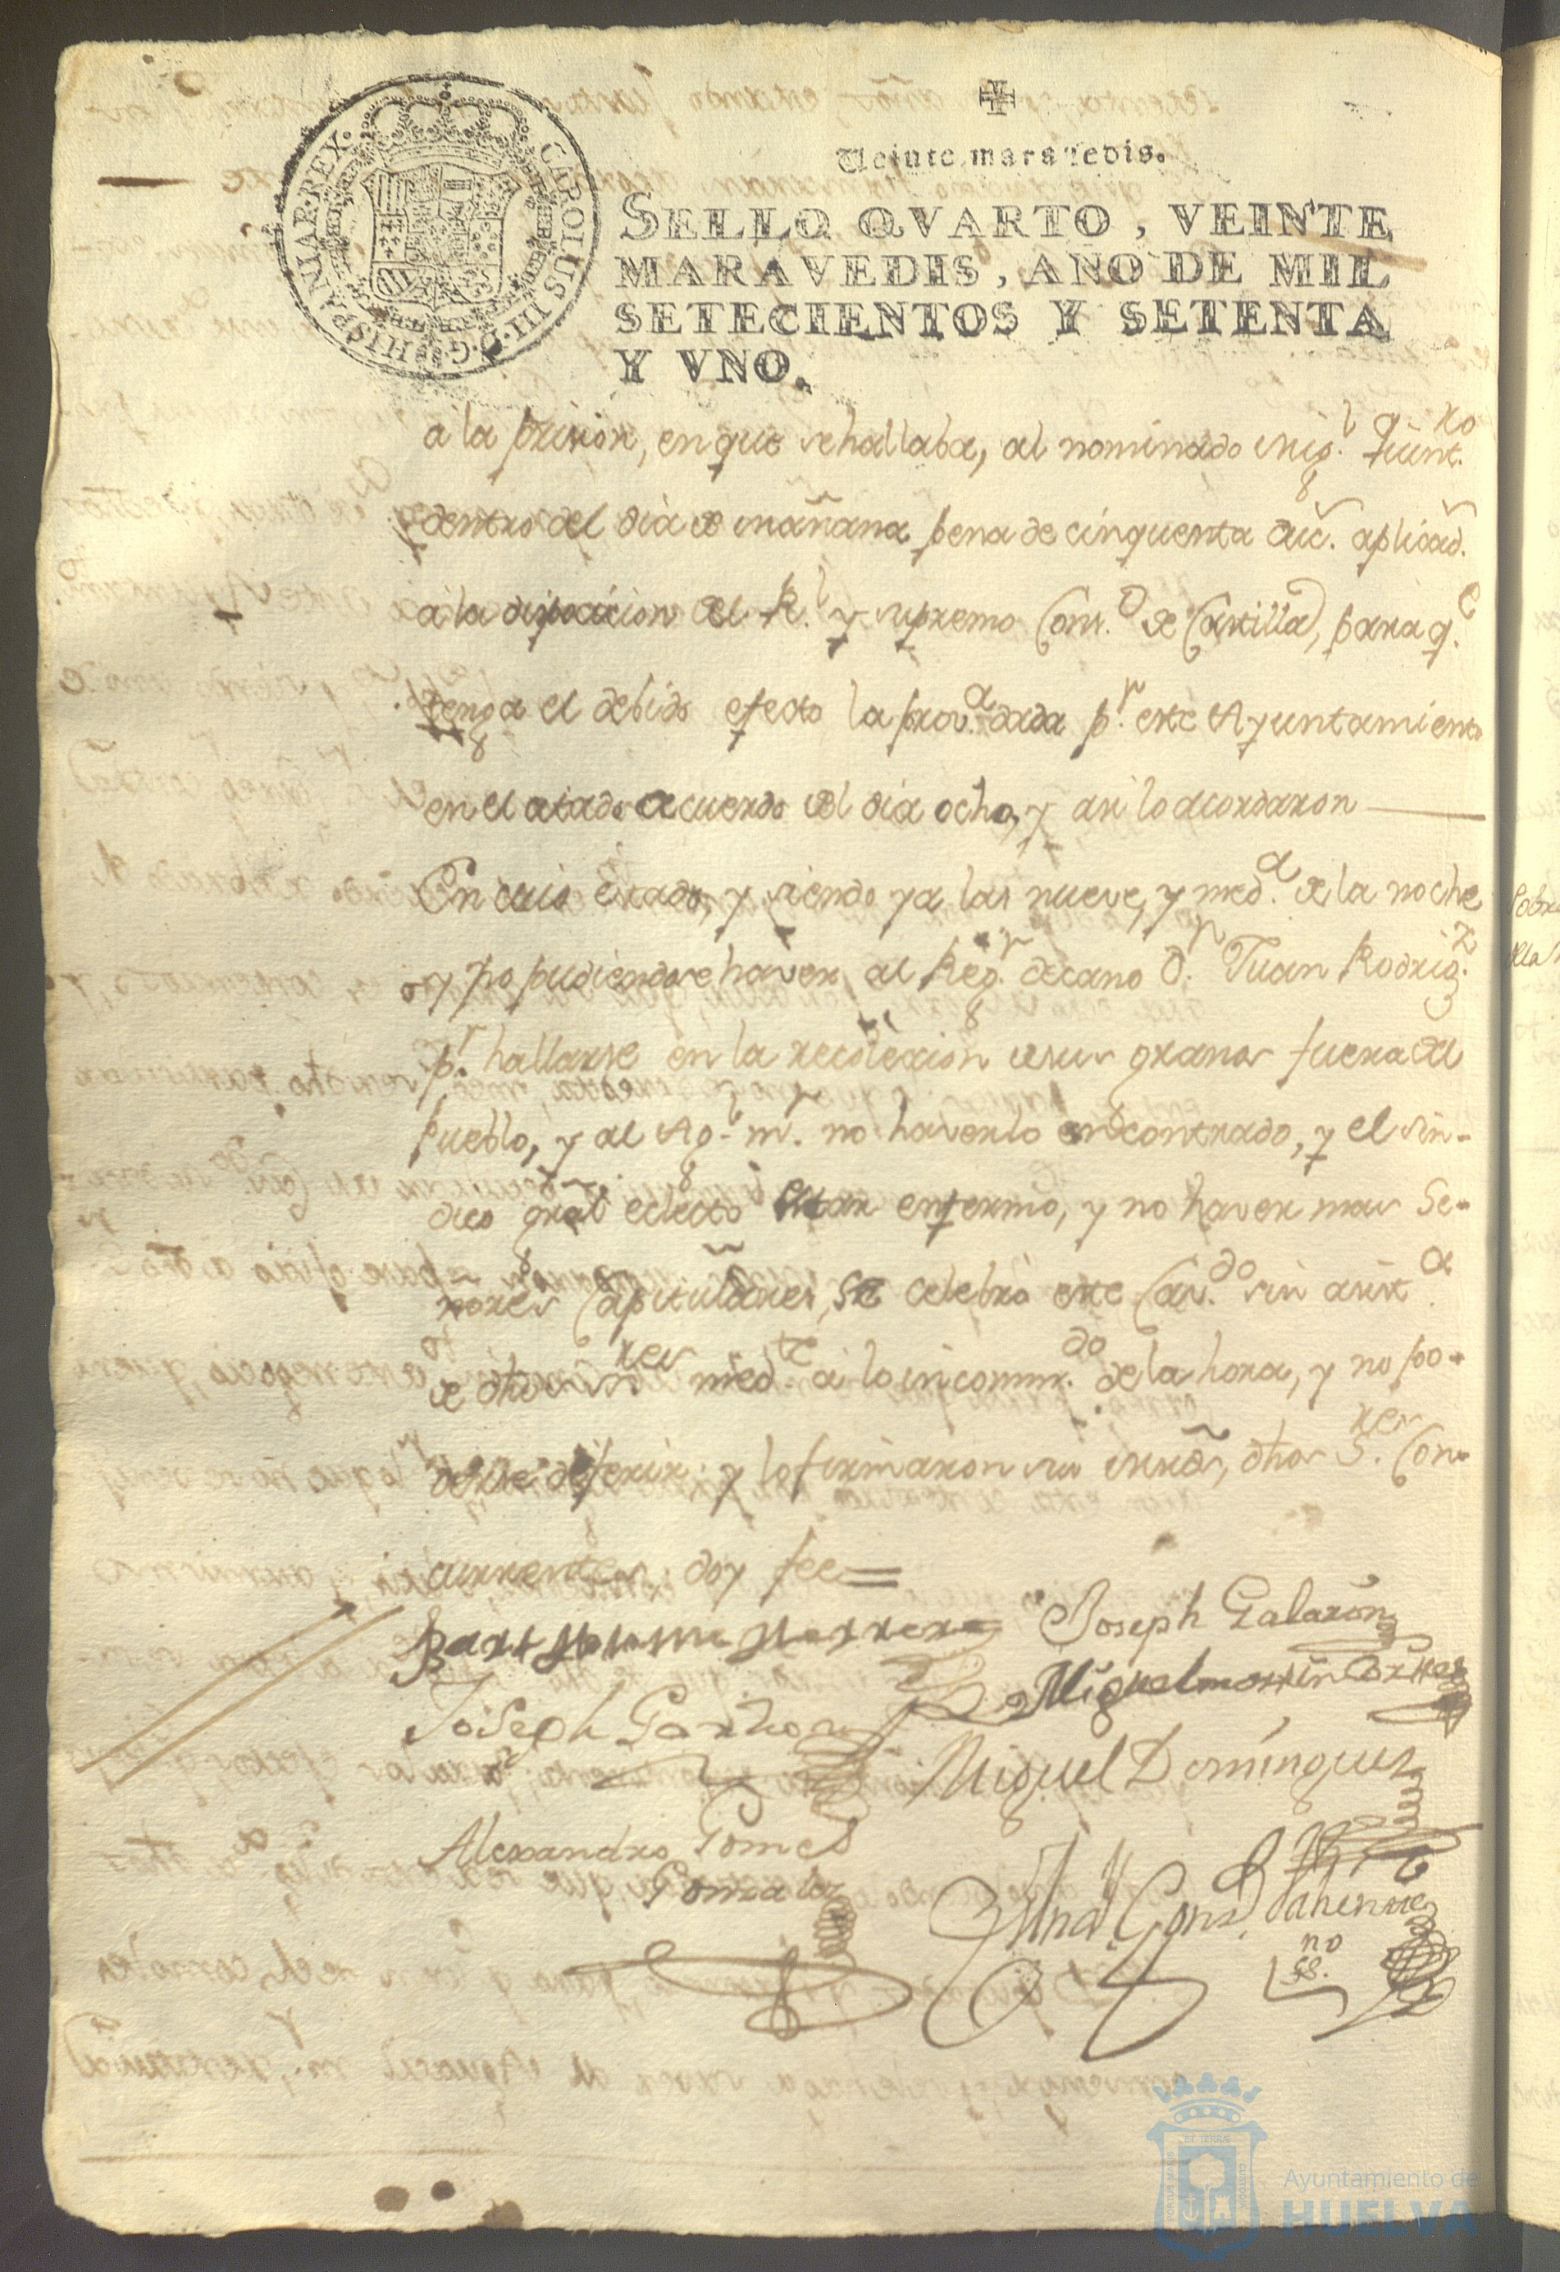 CAROLUS III D. G. HISPANIAR. REX.
Veinte maravedis.
SELLO QVARTO, VEINTE
MARAVEDIS, AÑO DE MIL
SETECIENTOS Y SETENTA
Y VNO.
a la prision, en que se hallaba, al nominado Mig.l Quint.ro
dentro del dia de mañana pena de cinquenta duc. aplicad.
a la disposicion del R.l y supremo Cons.o de Castilla, para q.e
tenga el debido efecto la prov.a dada p.r este Ayuntamiento
en el citado acuerdo del dia ocho, y asi lo acordaron
En cuio estado, y siendo ya las nueve, y med.a de la noche
y no pudiendose haver al Reg.r decano D.n Juan Rodrig.z
p.r hallarse en la recolexion de sus granos fuera del
pueblo, y al Ag.l m.r no haverlo encontrado, y el Sin-
dico gral electo estar enfermo, y no haver mas Se-
ñores Capitulares, se celebró este Cav.do sin asist.a
de dhos Sres med.te a lo incomm.do de la hora, y no po-
derse diferir; y lo firmaron sus mrds, dhos S.res Con-
currentes doy fee=
Bartholome Herrera Joseph Galason
Miguel martin Cortes
Joseph Garzon
Miguel Dominguez
Alexandro Gomes
Gonzalez
no
SS.
Ayuntamiento de
HUELVA